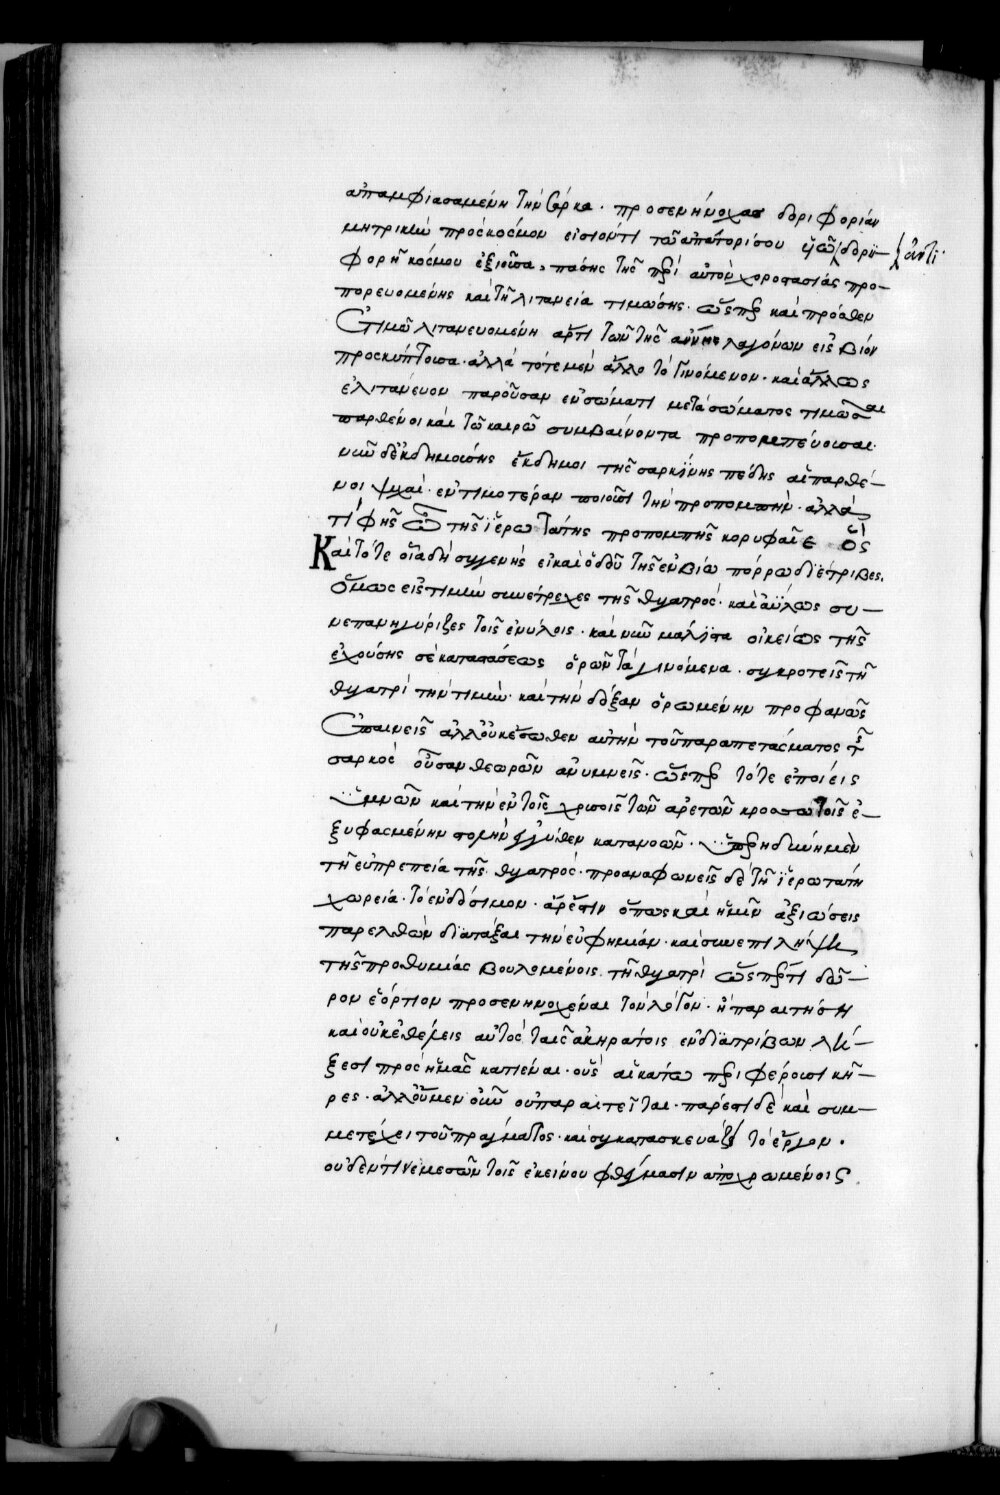 ἀπαμφιασαμένη τὴν σάρκα · προσενήνοχας δορυφορίαν
μητρικὴν πρὸς κόσμον εἰσιόντι τοῦ ἀπατορίσου ἡ δορυ-
ἀντι
φορῇ κόσμου ἐξιοῦσα, πάσης τῆς περὶ αὐτὸν χοροστασίας προ-
πορευομένης καὶ τῇ λιτανείᾳ τιμώσης · ὥσπερ καὶ πρόσθεν
ἐτιμῶ λιτανευομένη ἄρτι τῶν τῆς ἄννης λαγόνων εἰς βίον
προσκύπτουσα · ἀλλὰ τότε μὲν ἄλλο τὸ γινόμενον · καὶ ἄλλως
ἐλιτάνευον παροῦσαν ἐν σώματι μετὰ σώματος τιμῶσαι
παρθένοι καὶ τῷ καιρῷ συμβαίνοντα προπομπεύουσαι·
νῦν δ' ἐκδημούσης ἔκδημοι τῆς σαρκίνης πέδης αἱ παρθέ-
νοι ψυχαὶ · ἐντιμοτέραν ποιοῦσι τὴν προπομπὴν · ἀλλὰ
τί φῂς ὦ τῆς ἱερωτάτης προπομπῆς κορυφαῖε ὃς
Καὶ τότε οἷα δὴ συγενὴς εἰ καὶ ὁδοῦ τῆς ἐν βίῳ πόρρω διέτριβες.
ὅμως εἰς τιμὴν συνέτρεχες τῆς θυγατρὸς · καὶ ἀΰλως συ-
νεπανηγύριζες τοῖς ἐνύλοις · καὶ νῦν μάλιστα οἰκείως τῆς
ἐχούσης σε καταστάσεως ὁρῶν τὰ γινόμενα · συγκροτεῖς τῇ
θυγατρὶ τὴν τιμὴν · καὶ τὴν δόξαν ὁρωμένην προφανῶς
ἐπαινεῖς ἀλλ' οὐκ ἔσωθεν αὐτὴν τοῦ παραπετάσματος τῆς
σαρκὸς οὖσαν θεωρῶν ἀνυμνεῖς · ὥσπερ τότε ἐποίεις
ὑμνῶν καὶ τὴν ἐν τοῖς χρυσοῖς τῶν ἀρετῶν κροσσωτοῖς ἐ-
ξυφασμένην στολὴν ἔξωθεν κατανοῶν · ὑπερηδόμην μὲν
τῇ εὐπρεπείᾳ τῆς θυγατρὸς · προαναφωνεῖς δὲ τῇ ἱερωτάτῃ
χωρείᾳ · τὸ ἐνδόσιμον · ἄρ' ἔστιν ὅπως καὶ ἡμῖν ἀξιώσεις
παρελθὼν διατάξαι τὴν εὐφημίαν · καὶ συνεπιλήψῃ
τῆς προθυμίας βουλομένοις τῇ θυγατρὶ ὥσπερ τι δῶ-
ρον ἑόρτιον προσενηνοχέναι τὸν λόγον · ἢ παραιτήσῃ
καὶ οὐκ ἐθέλεις αὐτὸς ταῖς ἀκηράτοις ἐνδιατρίβων λή-
ξεσι πρὸς ἡμᾶς κατιέναι · οὓς αἱ κάτω περιφέρουσι κῆ-
ρες · ἀλλ' οὔμενουν οὐ παραιτεῖται · πάρεστι δὲ καὶ συμ-
μετέχει τοῦ πράγματος · καὶ συγκατασκευάζει τὸ ἔργον ·
οὐδέν τι νεμεσῶν τοῖς ἐκείνου φθέγμασιν ἀποχρωμένοις